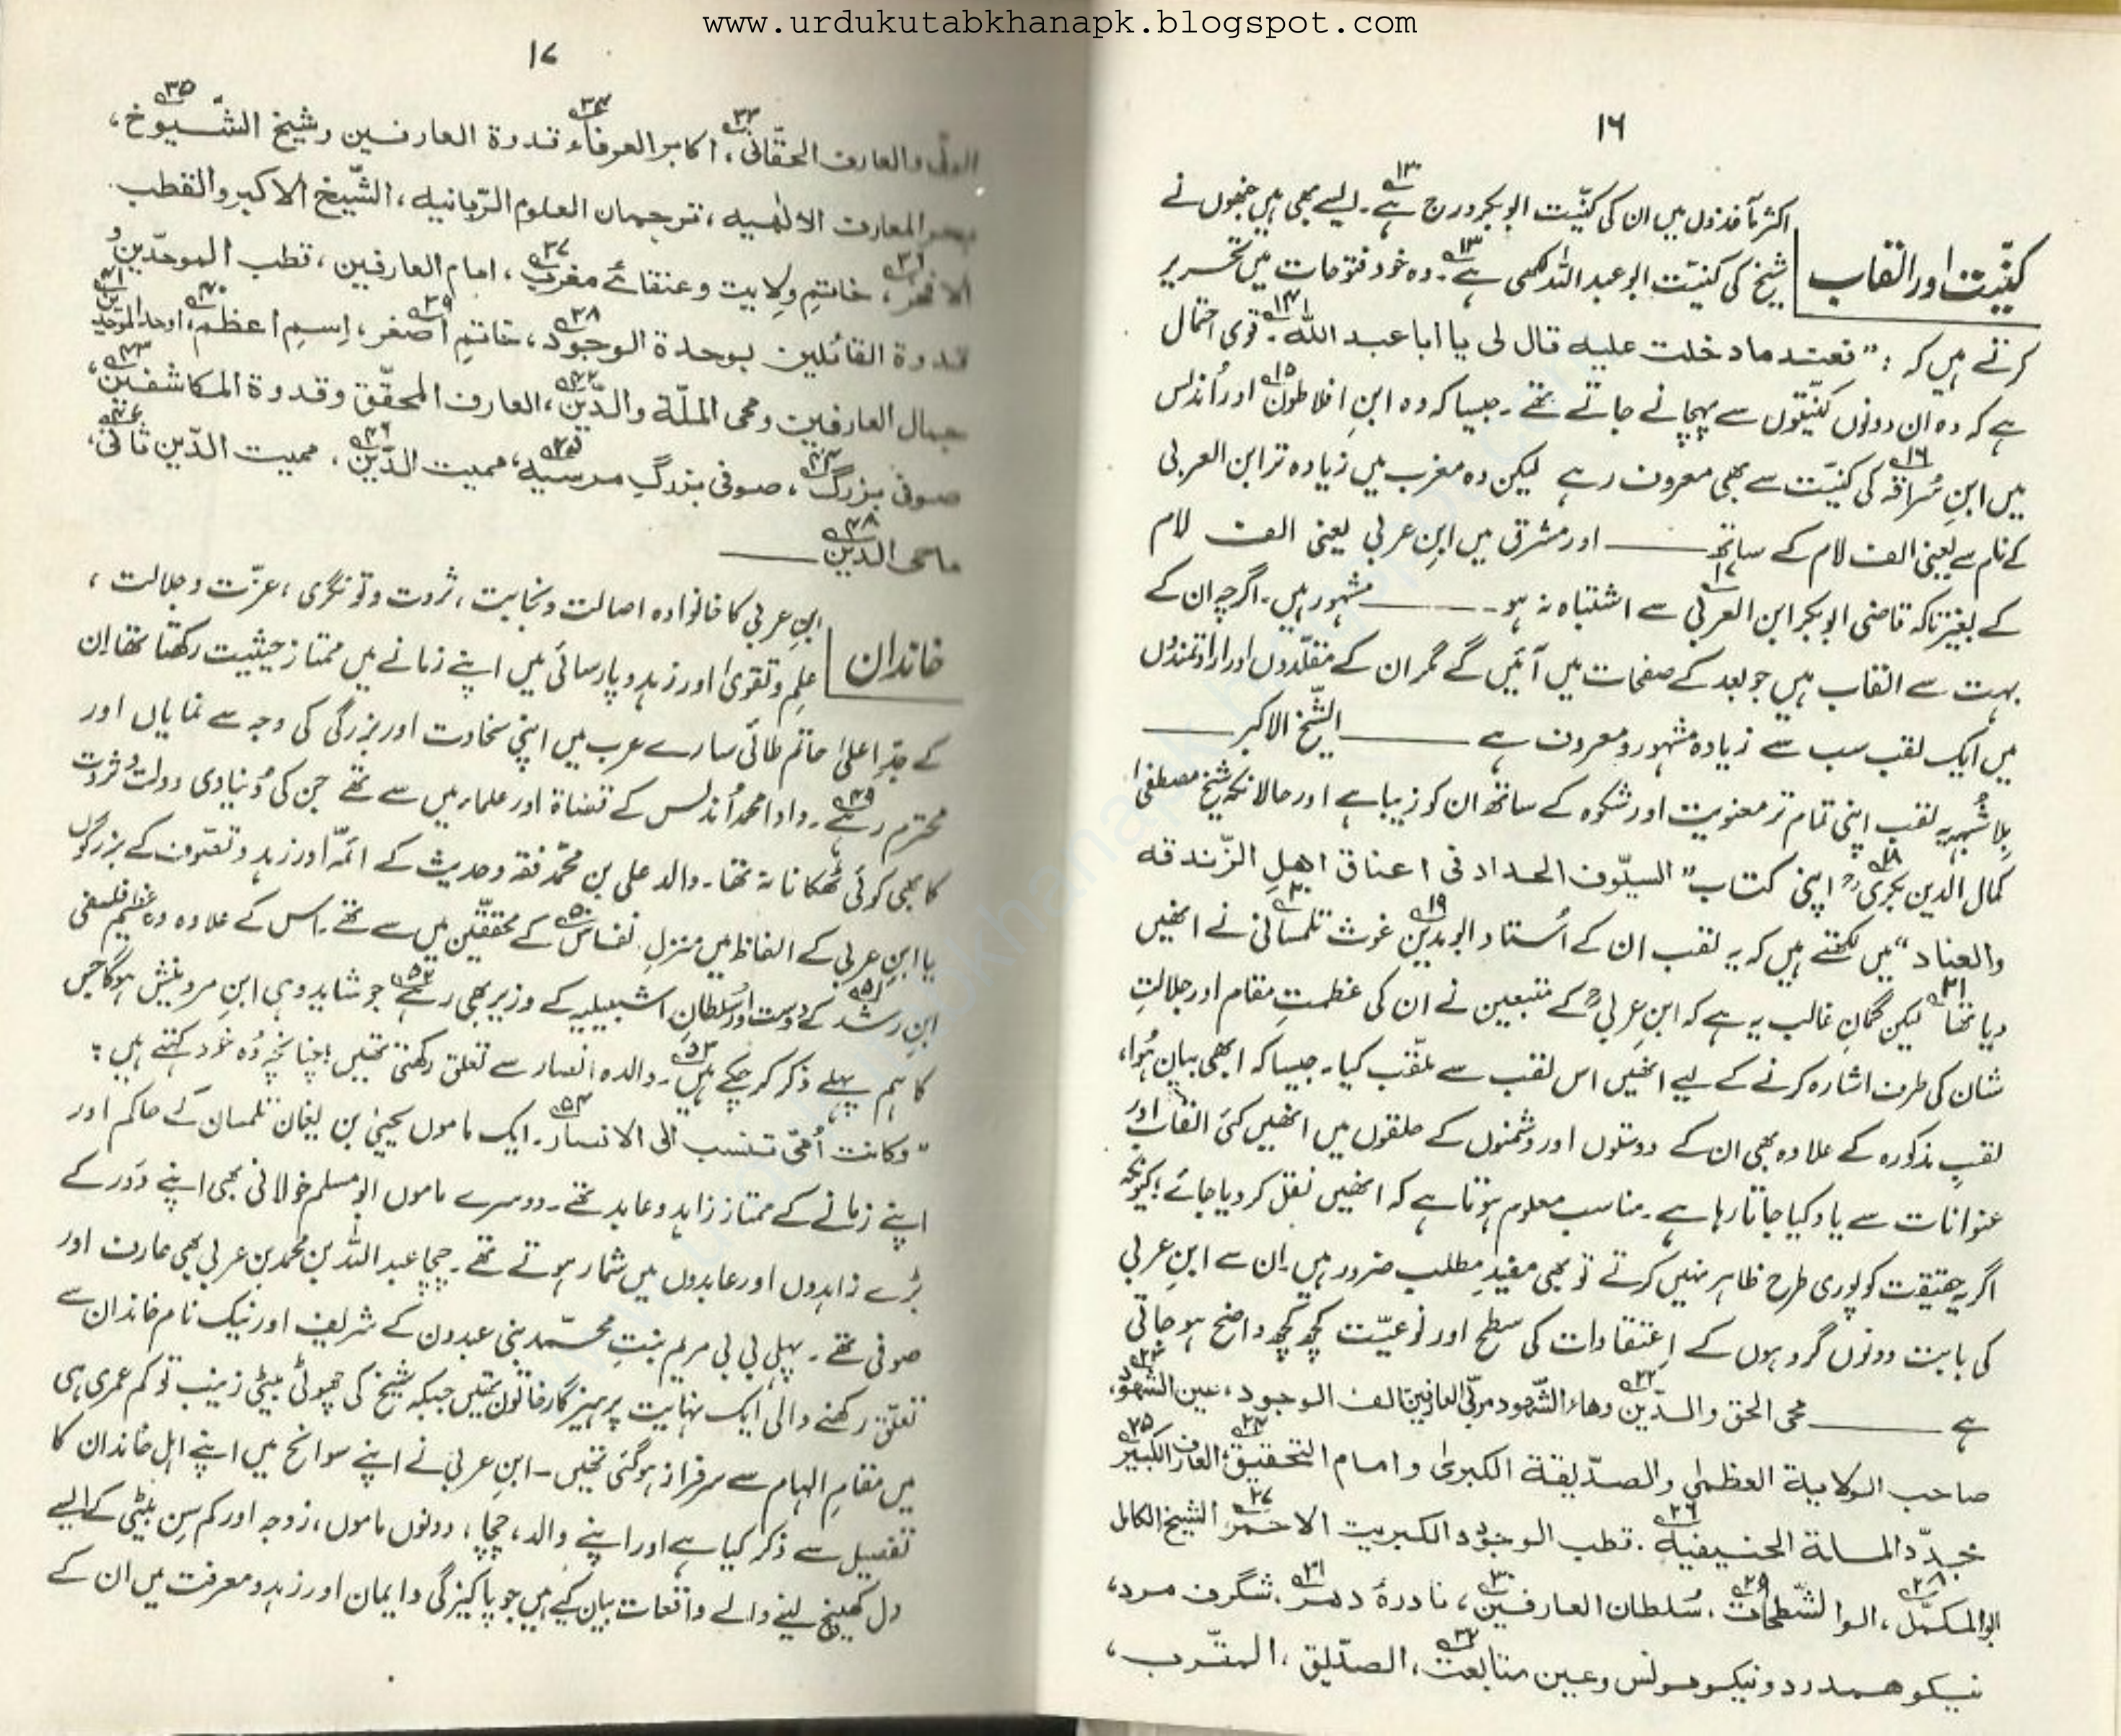 www.urdukutabkhanapk.blogspot.com
۱۶
کنیّت اور القاب
اکثر مآخذوں میں ان کی کنیّت ابوبکر درج ہے۱۲۔ ایسے بھی ہیں جنھوں نے
شیخ کی کنیّت ابو عبداللہ لکھی ہے۱۳۔ وہ خود فتوحات میں تحریر
کرتے ہیں کہ : "فعند ما دخلت علیه قال لی یا ابا عبد اللّٰه۱۴۔ قوی احتمال
ہے کہ وہ ان دونوں کنیّتوں سے پہچانے جاتے تھے۔ جیسا کہ وہ ابنِ افلاطون۱۵ اور اُندلس
میں ابنِ سُراقہ۱۶ کی کنیّت سے بھی معروف رہے لیکن وہ مغرب میں زیادہ تر ابن العربی
کے نام سے یعنی الف لام کے ساتھ ــــــ اور مشرق میں ابنِ عربی یعنی الف لام
کے بغیر تاکہ قاضی ابوبکر ابن العربی۱۷ سے اشتباہ نہ ہو ــــــ مشہور ہیں۔ اگرچہ ان کے
بہت سے القاب ہیں جو بعد کے صفحات میں آئیں گے مگر ان کے مقلّدوں اور ارادتمندوں
میں ایک لقب سب سے زیادہ مشہور و معروف ہے ــــــ الشّیخ الاکبر ــــــ
بلاشبہ یہ لقب اپنی تمام تر معنویت اور شکوہ کے ساتھ ان کو زیبا ہے اور حالانکہ شیخ مصطفیٰ
کمال الدین بکری۱۸ؒ اپنی کتاب "السیّوف الحداد فی اعناق اهل الزّندقه
والعناد" میں لکھتے ہیں کہ یہ لقب ان کے اُستاد ابومدین۱۹ غوث تلمسانی۲۰ نے انھیں
دیا تھا۲۱ لیکن گمانِ غالب یہ ہے کہ ابنِ عربیؒ کے متبعین نے ان کی عظمتِ مقام اور جلالتِ
شان کی طرف اشارہ کرنے کے لیے انھیں اس لقب سے ملقّب کیا۔ جیسا کہ ابھی بیان ہُوا،
لقبِ مذکورہ کے علاوہ بھی ان کے دوستوں اور دشمنوں کے حلقوں میں انھیں کئی القاب اور
عنوانات سے یاد کیا جاتا رہا ہے۔ مناسب معلوم ہوتا ہے کہ انھیں نقل کر دیا جائے؛ کیونکہ
اگر یہ حقیقت کو پوری طرح ظاہر نہیں کرتے تو بھی مفیدِ مطلب ضرور ہیں۔ ان سے ابنِ عربی
کی بابت دونوں گروہوں کے اِعتقادات کی سطح اور نوعیّت کچھ کچھ واضح ہو جاتی
ہے ــــــ محی الحق والدّین۲۲ وهاء الشّهود مربّی العارفین الف الوجود، عین الشهود۲۳،
صاحب الولایة العظمٰی والصدّیقة الکبریٰ وامام التحقیق۲۴، العارف الکبیر۲۵
مجدّد الملة الحنیفیه۲۶۔ قطب الوجود الکبریت الاحمر۲۷ الشیخ الکامل
المکمّل۲۸، ابوالشّطحات۲۹، سُلطان العارفین۳۰، نادرهٔ دهر۳۱، شگرف مرد،
نیکو همدرد و نیکو مونس وعین متابعت۳۲، الصدّیق، المقرّب،
۱۷
الولی والعارف الحقّانی۳۳، اکابر العرفاء۳۴ قدوة العارفین وشیخ الشّیوخ۳۵،
بحر المعارف الالٰهیه، ترجمان العلوم الرّبانیه، الشّیخ الاکبر والقطب
الافخر۳۶، خاتمِ وِلایت وعنقائے مغرب۳۷، امام العارفین، قطب الموحّدین و
قدوة القائلین بوحدة الوجود۳۸، خاتمِ اصغر۳۹، اِسمِ اعظم۴۰، اوحد الموحدین۴۱
جمال العارفین ومحی الملّة والدّین۴۲، العارف المحقّق وقدوة المکاشفین۴۳،
صوفی بزرگ۴۴، صوفی بزرگِ مرسیه۴۵، ممیت الدّین۴۶، ممیت الدّین ثانی۴۷،
ماحی الدّین۴۸ ــــــ
خاندان
ابنِ عربی کا خانوادہ اصالت و نجابت، ثروت و تونگری، عزّت و جلالت،
علم و تقویٰ اور زہد و پارسائی میں اپنے زمانے میں ممتاز حیثیت رکھتا تھا۔ ان
کے جدِّ اعلیٰ حاتم طائی سارے عرب میں اپنی سخاوت اور بزرگی کی وجہ سے نمایاں اور
محترم رہے۴۹۔ دادا محمد اُندلس کے قضاة اور علماء میں سے تھے جن کی دُنیاوی دولت و ثروت
کا بھی کوئی ٹھکانا نہ تھا۔ والد علی بن محمّد فقہ و حدیث کے ائمّہ اور زہد و تصوّف کے بزرگوں
یا ابنِ عربی کے الفاظ میں منزلِ نفاس۵۰ کے محققّین میں سے تھے۔ اس کے علاوہ وہ عظیم فلسفی
ابنِ رشد۵۱ کے دوست اور سُلطانِ اشبیلیہ کے وزیر بھی رہے۵۲ جو شاید وہی ابنِ مردنیش ہو گا جس
کا ہم پہلے ذکر کر چکے ہیں۵۳۔ والدہ انصار سے تعلق رکھتی تھیں؛ چنانچہ وُہ خود کہتے ہیں :
"وکانت اُمّی تنسب الی الانصار۵۴۔ ایک ماموں یحییٰ بن یغان تلمسان کے حاکم اور
اپنے زمانے کے ممتاز زاہد و عابد تھے۔ دوسرے ماموں ابو مسلم خولانی بھی اپنے دَور کے
بڑے زاہدوں اور عابدوں میں شمار ہوتے تھے۔ چچا عبداللہ بن محمد بن عربی بھی عارف اور
صوفی تھے۔ پہلی بی بی مریم بنتِ محمّد بنی عبدون کے شریف اور نیک نام خاندان سے
تعلّق رکھنے والی ایک نہایت پرہیزگار خاتون تھیں جبکہ شیخ کی چھوٹی بیٹی زینب تو کم عمری ہی
میں مقامِ الہام سے سرفراز ہو گئی تھیں۔ ابنِ عربی نے اپنے سوانح میں اپنے اہلِ خاندان کا
تفصیل سے ذکر کیا ہے اور اپنے والد، چچا، دونوں ماموں، زوجہ اور کم سِن بیٹی کے ایسے
دل کھینچ لینے والے واقعات بیان کیے ہیں جو پاکیزگی و ایمان اور زہد و معرفت میں ان کے